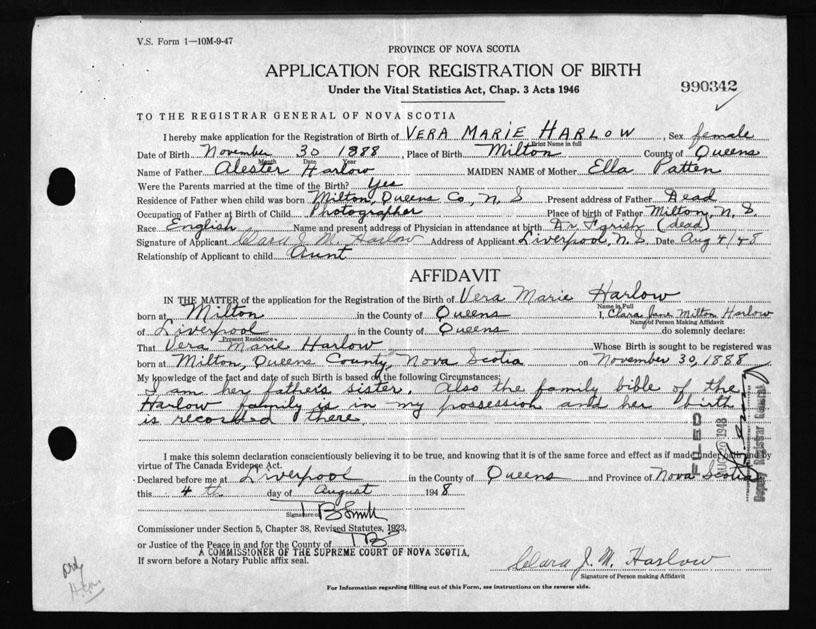 V.S. Form 1—10M-9-47
PROVINCE OF NOVA SCOTIA
APPLICATION FOR REGISTRATION OF BIRTH
Under the Vital Statistics Act, Chap. 3 Acts 1946
990342
TO THE REGISTRAR GENERAL OF NOVA SCOTIA
I hereby make application for the Registration of Birth of VERA MARIE HARLOW, Sex female
Print Name in full
Date of Birth November 30 1888, Place of Birth Milton County of Queens
Month Date Year
Name of Father Alester Harlow MAIDEN NAME of Mother Ella Patten
Were the Parents married at the time of the Birth? Yes
Residence of Father when child was born Milton, Queens Co, N. S Present address of Father Dead
Occupation of Father at Birth of Child Photographer Place of birth of Father Milton, N. S.
Race English Name and present address of Physician in attendance at birth Dr Farish (dead)
Signature of Applicant Clara J. M. Harlow Address of Applicant Liverpool, N. S. Date Aug 4/48
Relationship of Applicant to child Aunt
AFFIDAVIT
IN THE MATTER of the application for the Registration of the Birth of Vera Marie Harlow
Name in Full
born at Milton in the County of Queens I, Clara Jane Milton Harlow
Name of Person Making Affidavit
of Liverpool in the County of Queens do solemnly declare:
Present Residence
That Vera Marie Harlow Whose Birth is sought to be registered was
born at Milton, Queens County, Nova Scotia on November 30, 1888
My knowledge of the fact and date of such Birth is based on the following Circumstances:
I am her father's sister. Also the family bible of the
Harlow family is in my possession and her birth
is recorded there.
FILED
1948
Deputy Registrar General
I make this solemn declaration conscientiously believing it to be true, and knowing that it is of the same force and effect as if made under oath and by
virtue of The Canada Evidence Act.
Declared before me at Liverpool in the County of Queens and Province of Nova Scotia
this 4th day of August 1948
Signature of
Commissioner under Section 5, Chapter 38, Revised Statutes, 1923,
or Justice of the Peace in and for the County of
A COMMISSIONER OF THE SUPREME COURT OF NOVA SCOTIA.
If sworn before a Notary Public affix seal.
Clara J. M. Harlow
Signature of Person making Affidavit
For Information regarding filling out of this Form, see instructions on the reverse side.